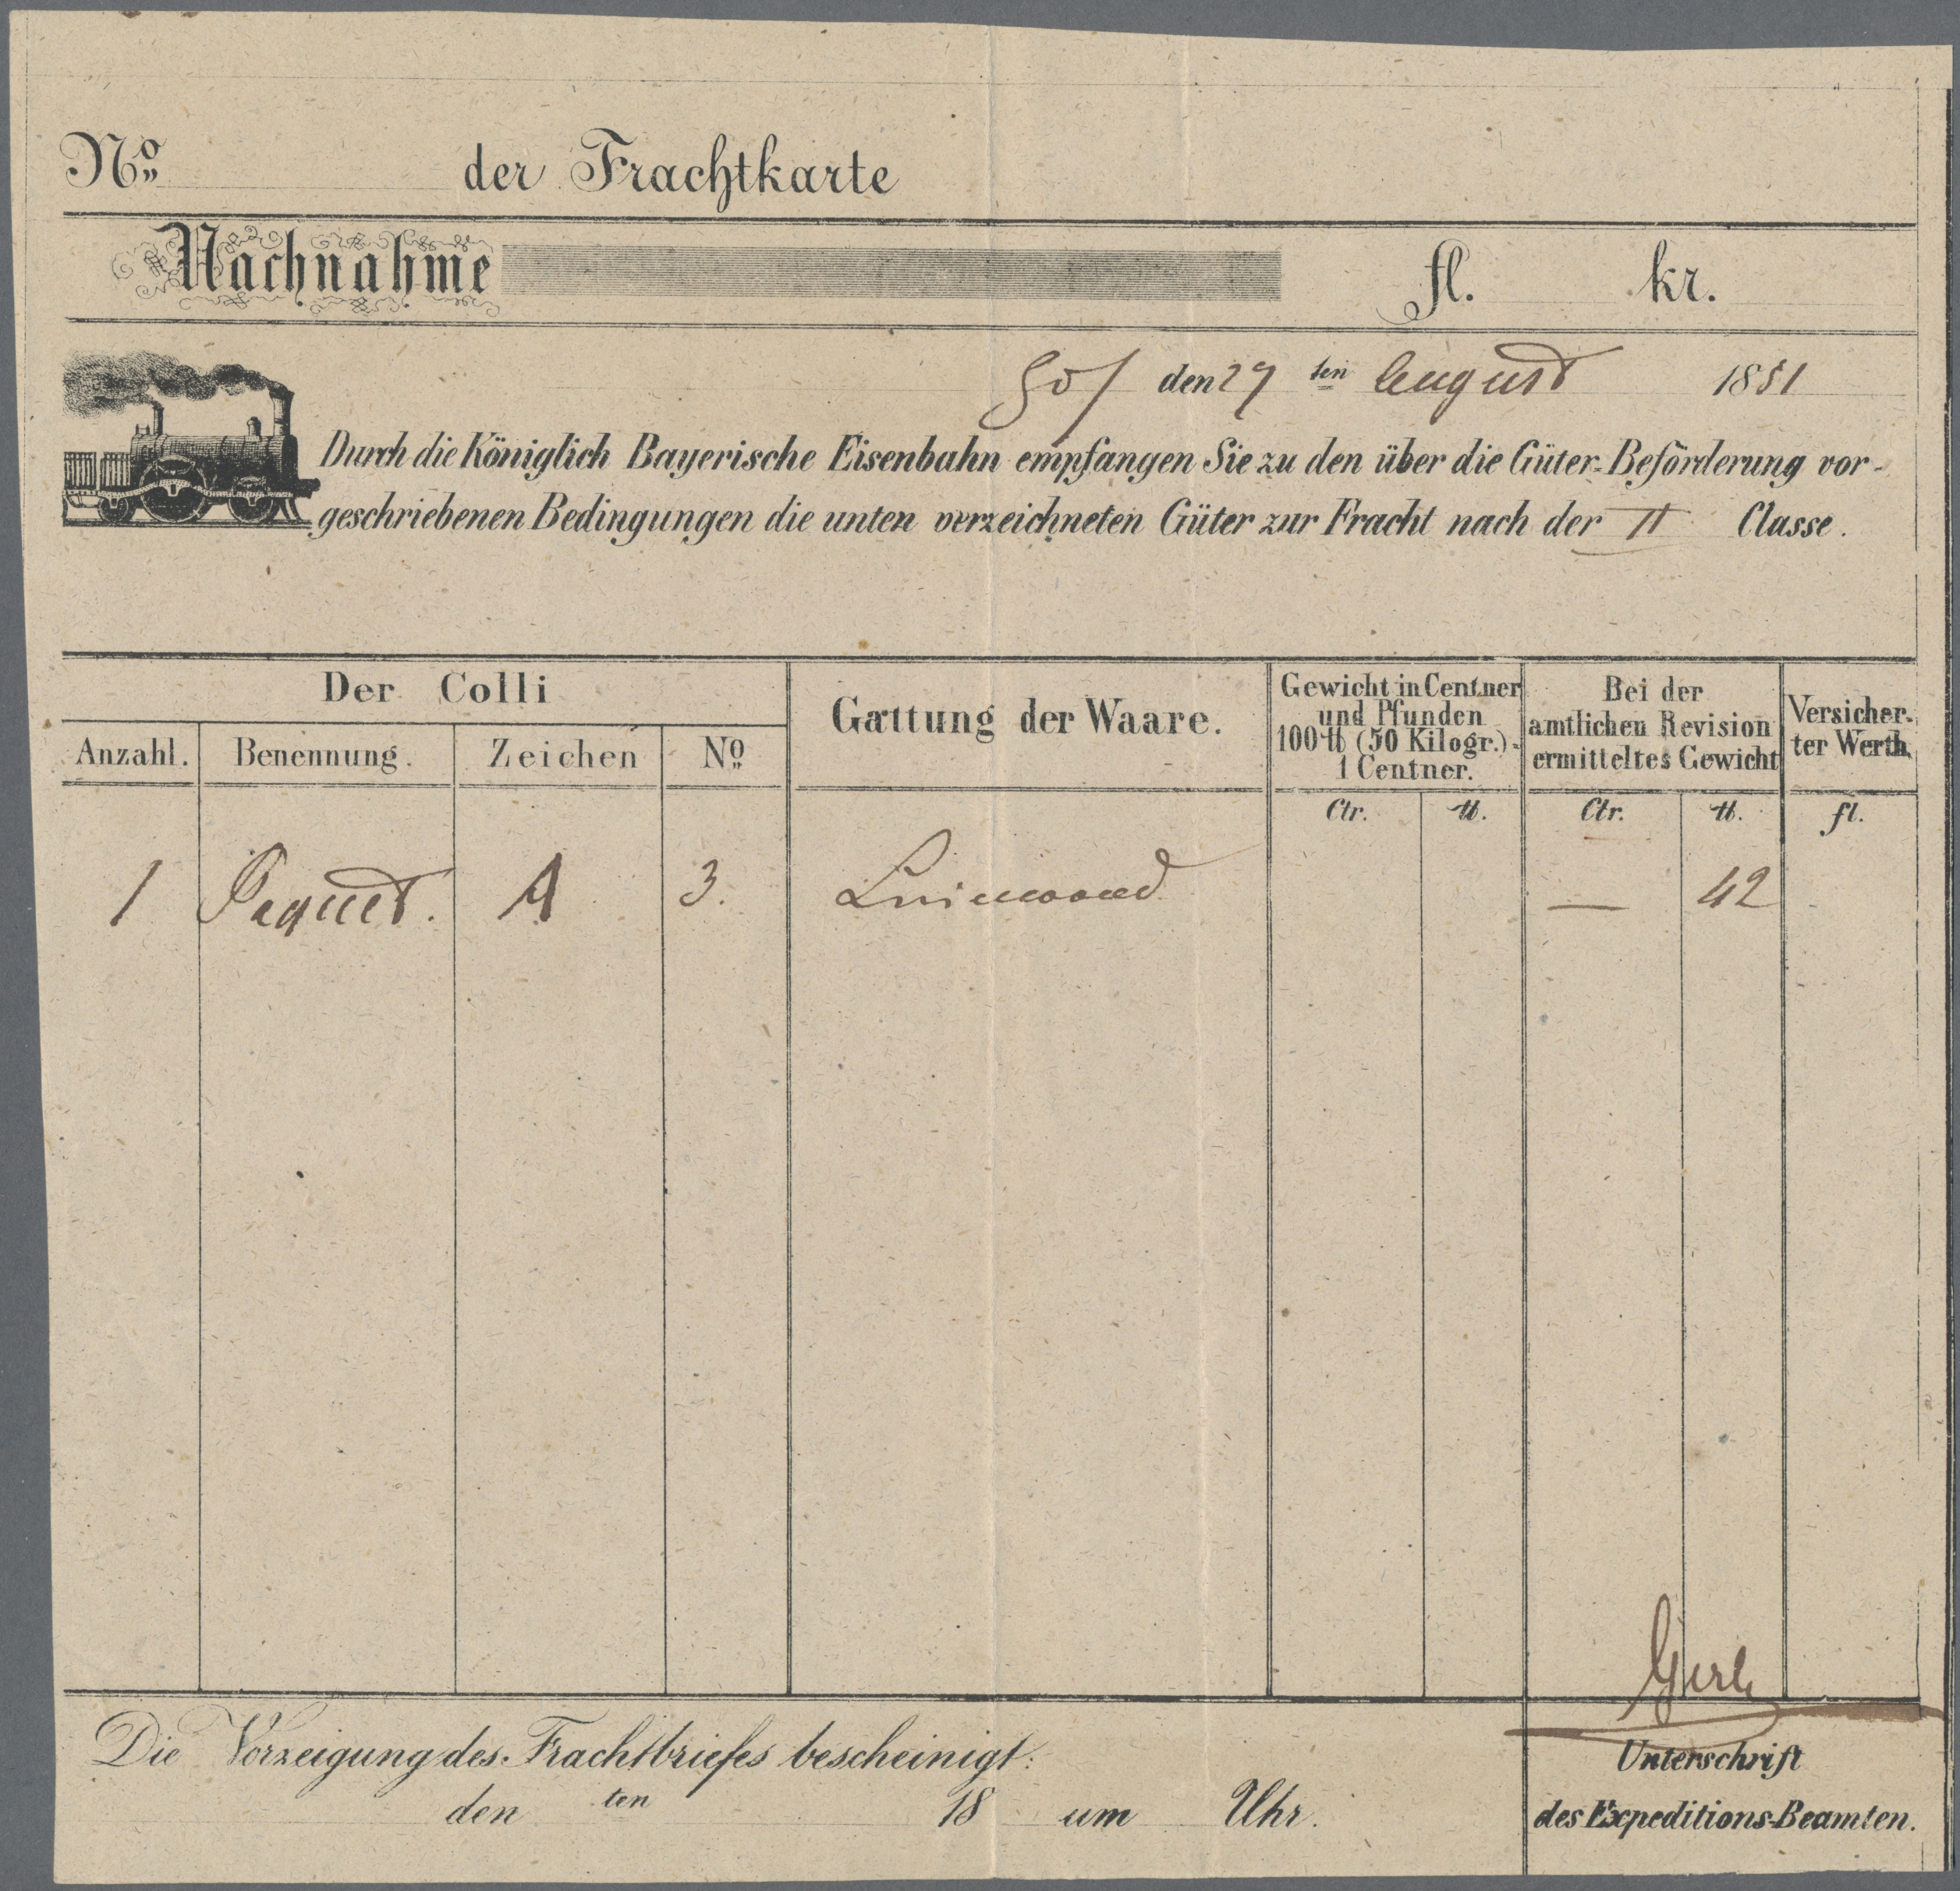 No der Frachtkarte
Nachnahme fl. kr.
Hof den 29 ten August 1851
Durch die Königlich Bayerische Eisenbahn empfangen Sie zu den über die Güter-Beförderung vor-
geschriebenen Bedingungen die unten verzeichneten Güter zur Fracht nach der II Classe.
Der Colli
Anzahl.
Benennung.
Zeichen
No
Gattung der Waare.
Gewicht in Centner
und Pfunden
100 ℔ (50 Kilogr.)=
1 Centner.
Bei der
amtlichen Revision
ermitteltes Gewicht
Versicher-
ter Werth.
Ctr. ℔. Ctr. ℔. fl.
1 Paquet. A 3. Leinwand — 42
Die Vorzeigung des Frachtbriefes bescheinigt:
den ten 18 um Uhr.
Unterschrift
des Expeditions-Beamten.